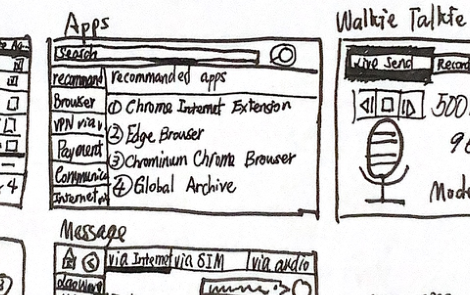 Apps
Search
recommand
recommanded apps
Browser
① Chrome Internet Extension
VPN via
② Edge Browser
Payment
③ Chrominum Chrome Browser
Communica
④ Global Archive
Internet
Walkie Talkie
Live Send
Record
500
Mode
Massage
via Internet
via SIM
via audio
4